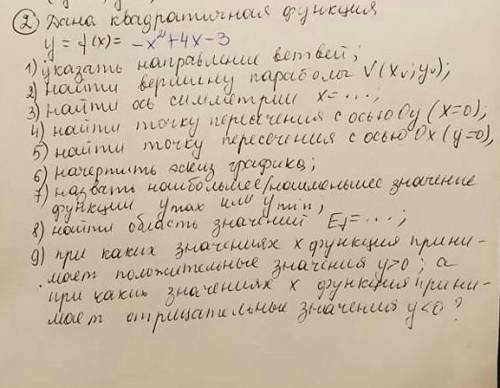 ② Дана квадратичная функция
y = f(x) = -x² + 4x - 3
1) указать направление ветвей;
2) найти вершину параболы V(xv; yv);
3) найти ось симметрии x = ...;
4) найти точку пересечения с осью Oy (x=0);
5) найти точку пересечения с осью Ox (y=0);
6) начертить эскиз графика;
7) назвать наибольшее/наименьшее значение
функции ymax или ymin;
8) найти область значений Ef = ...;
9) при каких значениях x функция прини-
мает положительные значения y>0; а
при каких значениях x функция прини-
мает отрицательные значения y<0?